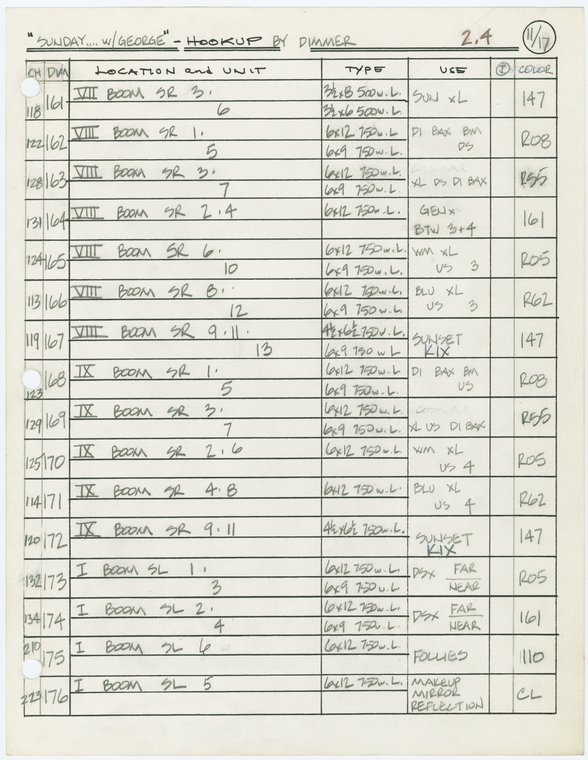 "SUNDAY.... W/GEORGE" - HOOKUP BY DIMMER 2.4 11/17
CH DIM LOCATION and UNIT TYPE USE COLOR
118 161 VII BOOM SR 3. 3½x8 500w.L. SUN XL 147
6 3½x6 500w.L.
122 162 VIII BOOM SR 1. 6x12 750w.L. DI BAX BM R08
5 6x9 750w.L. DS
128 163 VIII BOOM SR 3. 6x12 750w.L. R55
7 6x9 750w.L. XL DS DI BAX
131 164 VIII BOOM SR 2.4 6x12 750w.L. GENX 161
BTW 3+4
124 165 VIII BOOM SR 6. 6x12 750w.L. WM XL R05
10 6x9 750w.L. US 3
113 166 VIII BOOM SR 8. 6x12 750w.L. BLU XL R62
12 6x9 750w.L. US 3
119 167 VIII BOOM SR 9.11. 4½x6½ 750w.L. SUNSET 147
13 6x9 750w L KIX
123 168 IX BOOM SR 1. 6x12 750w.L. DI BAX BM R08
5 6x9 750w.L. US
129 169 IX BOOM SR 3. 6x12 750w.L. R55
7 6x9 750w.L. XL US DI BAX
125 170 IX BOOM SR 2,6 6x12 750w.L. WM XL R05
US 4
114 171 IX BOOM SR 4.8 6x12 750w.L. BLU XL R62
US 4
120 172 IX BOOM SR 9.11 4½x6½ 750w.L. SUNSET 147
KIX
132 173 I BOOM SL 1. 6x12 750w.L. DSX FAR R05
3 6x9 750w.L. NEAR
134 174 I BOOM SL 2. 6x12 750w.L. DSX FAR 161
4 6x9 750w.L. NEAR
210 175 I BOOM SL 6 6x12 750w.L. FOLLIES 110
223 176 I BOOM SL 5 6x12 750w.L. MAKEUP CL
MIRROR
REFLECTION